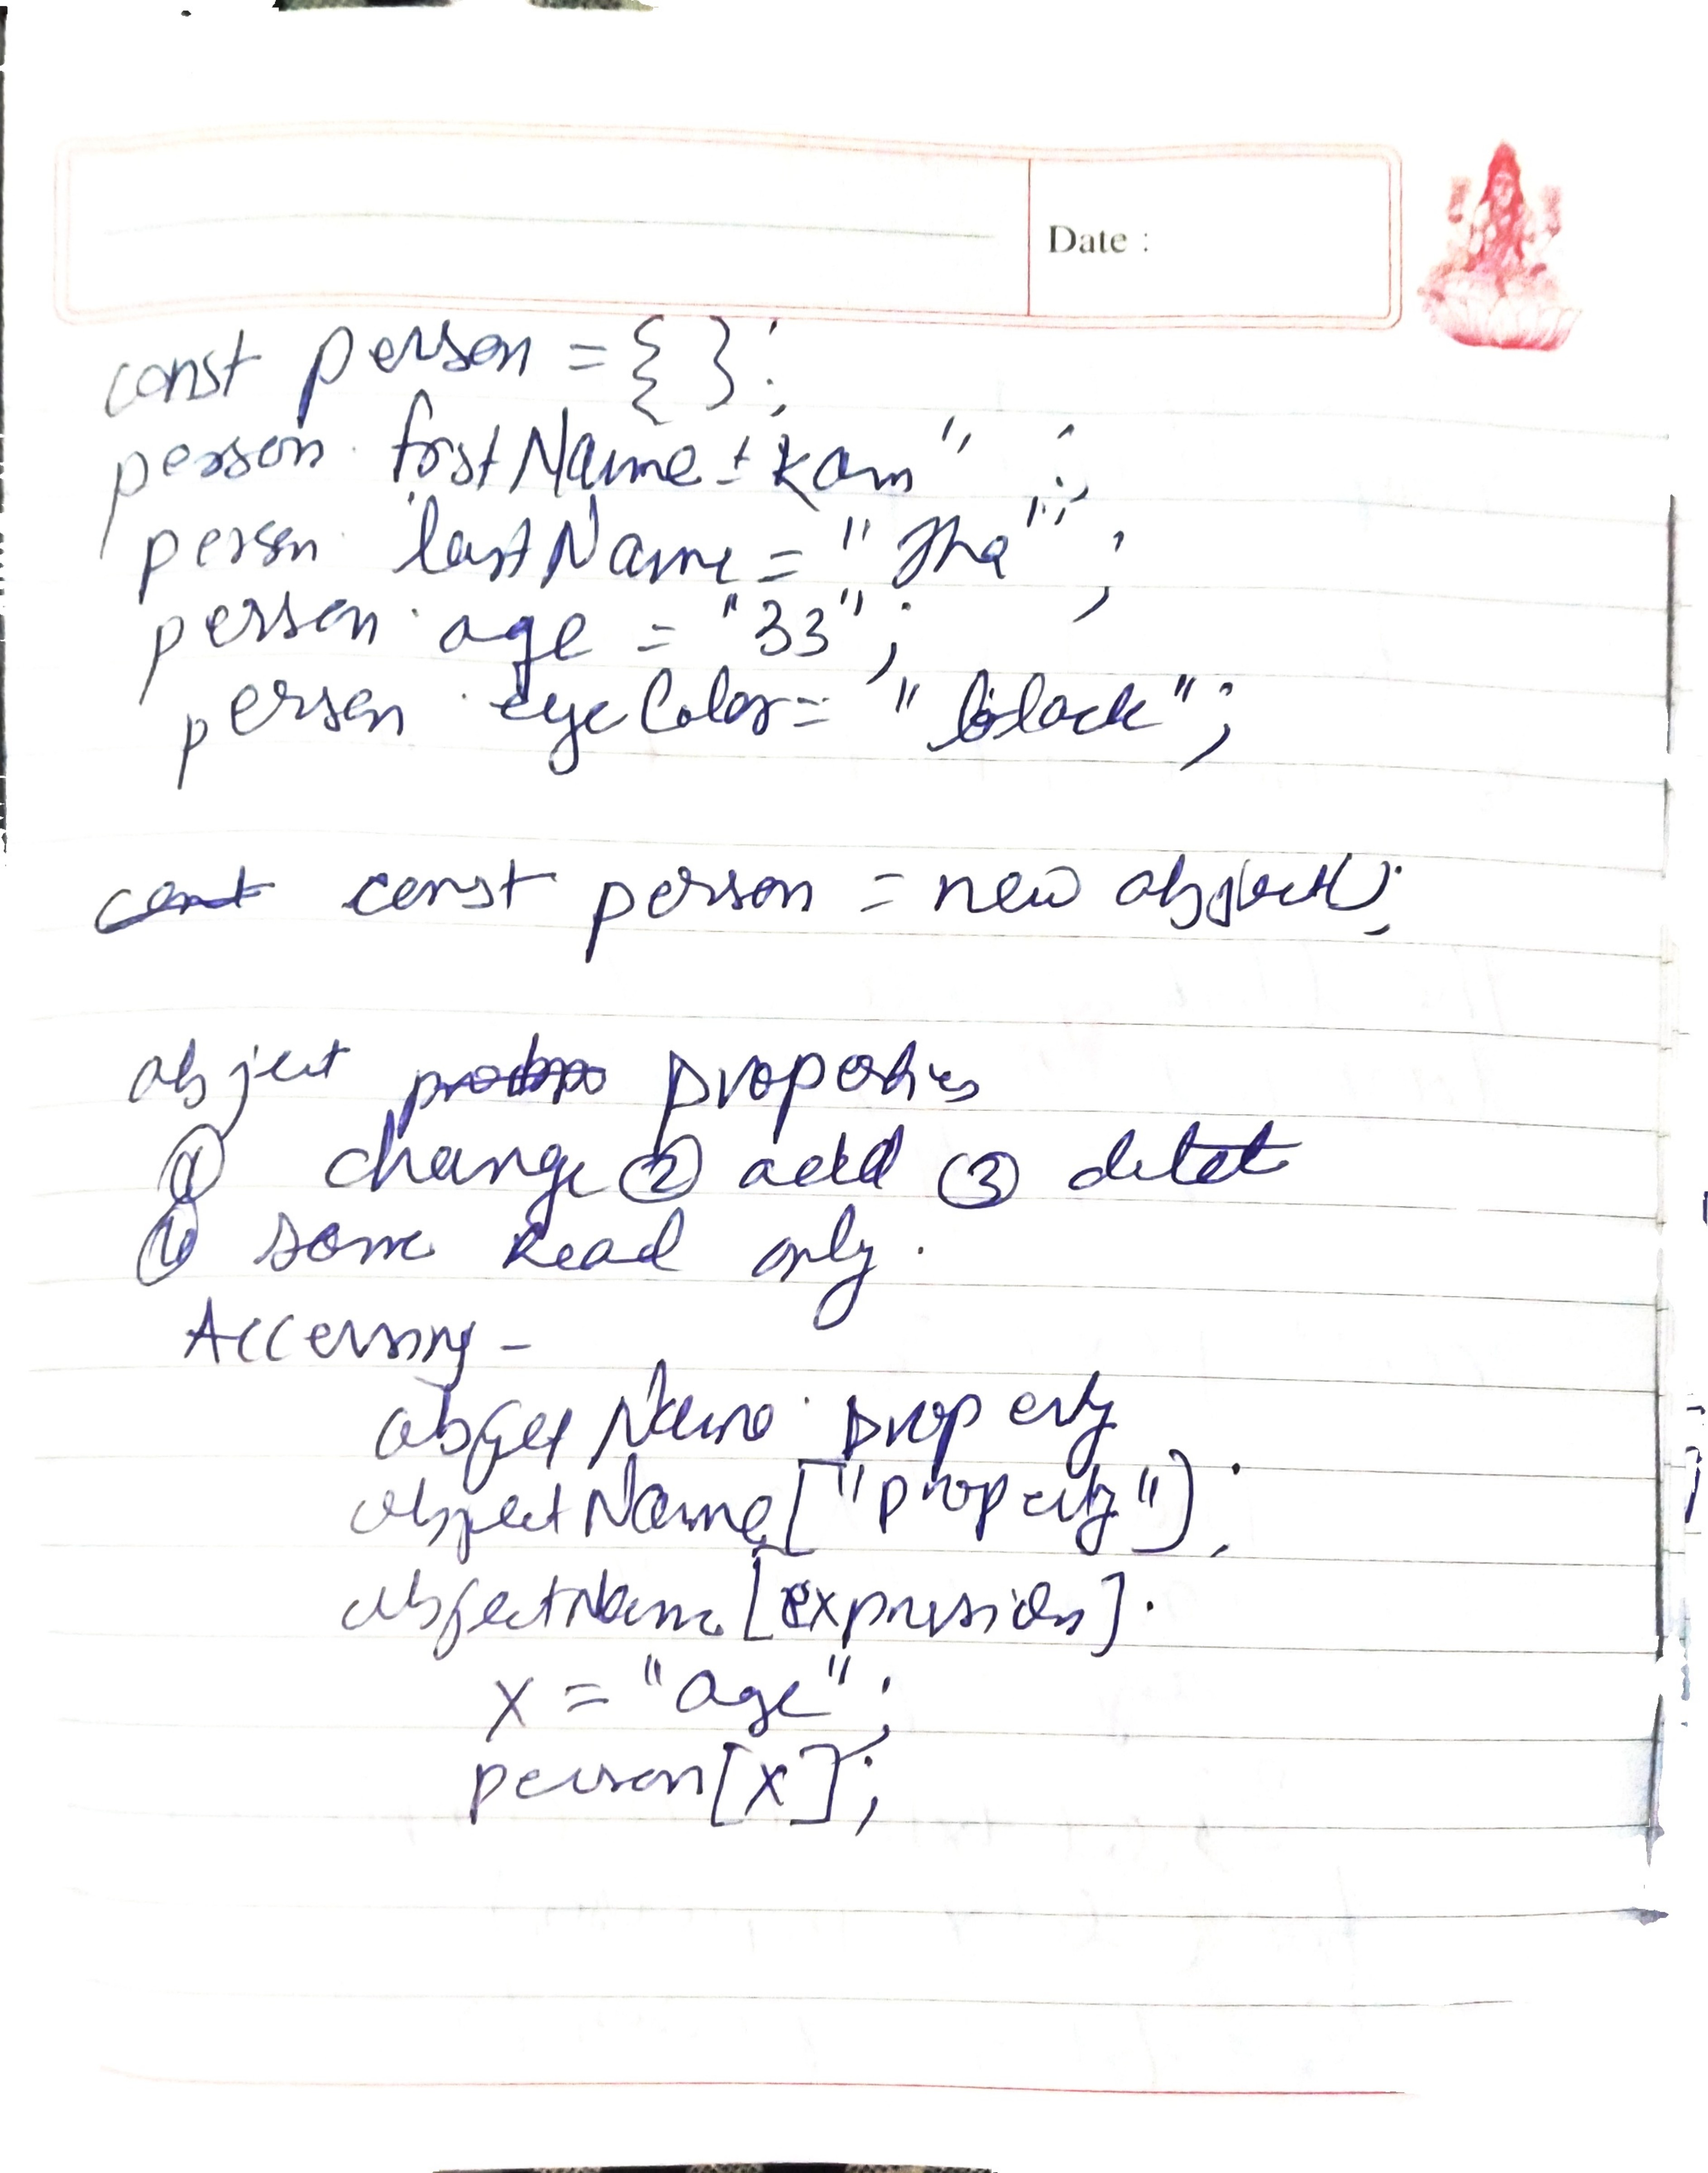 Date :
const person = { };
person. firstName = "kam" ;
person. lastName = "Jha" ;
person. age = "33" ;
person. eyeColor = "black" ;
const person = new object();
object properties
① change ② add ③ delet
④ some read only.
Accessing -
objectName. property
objectName["property"];
objectName[expression].
x = "age" ;
person[x] ;